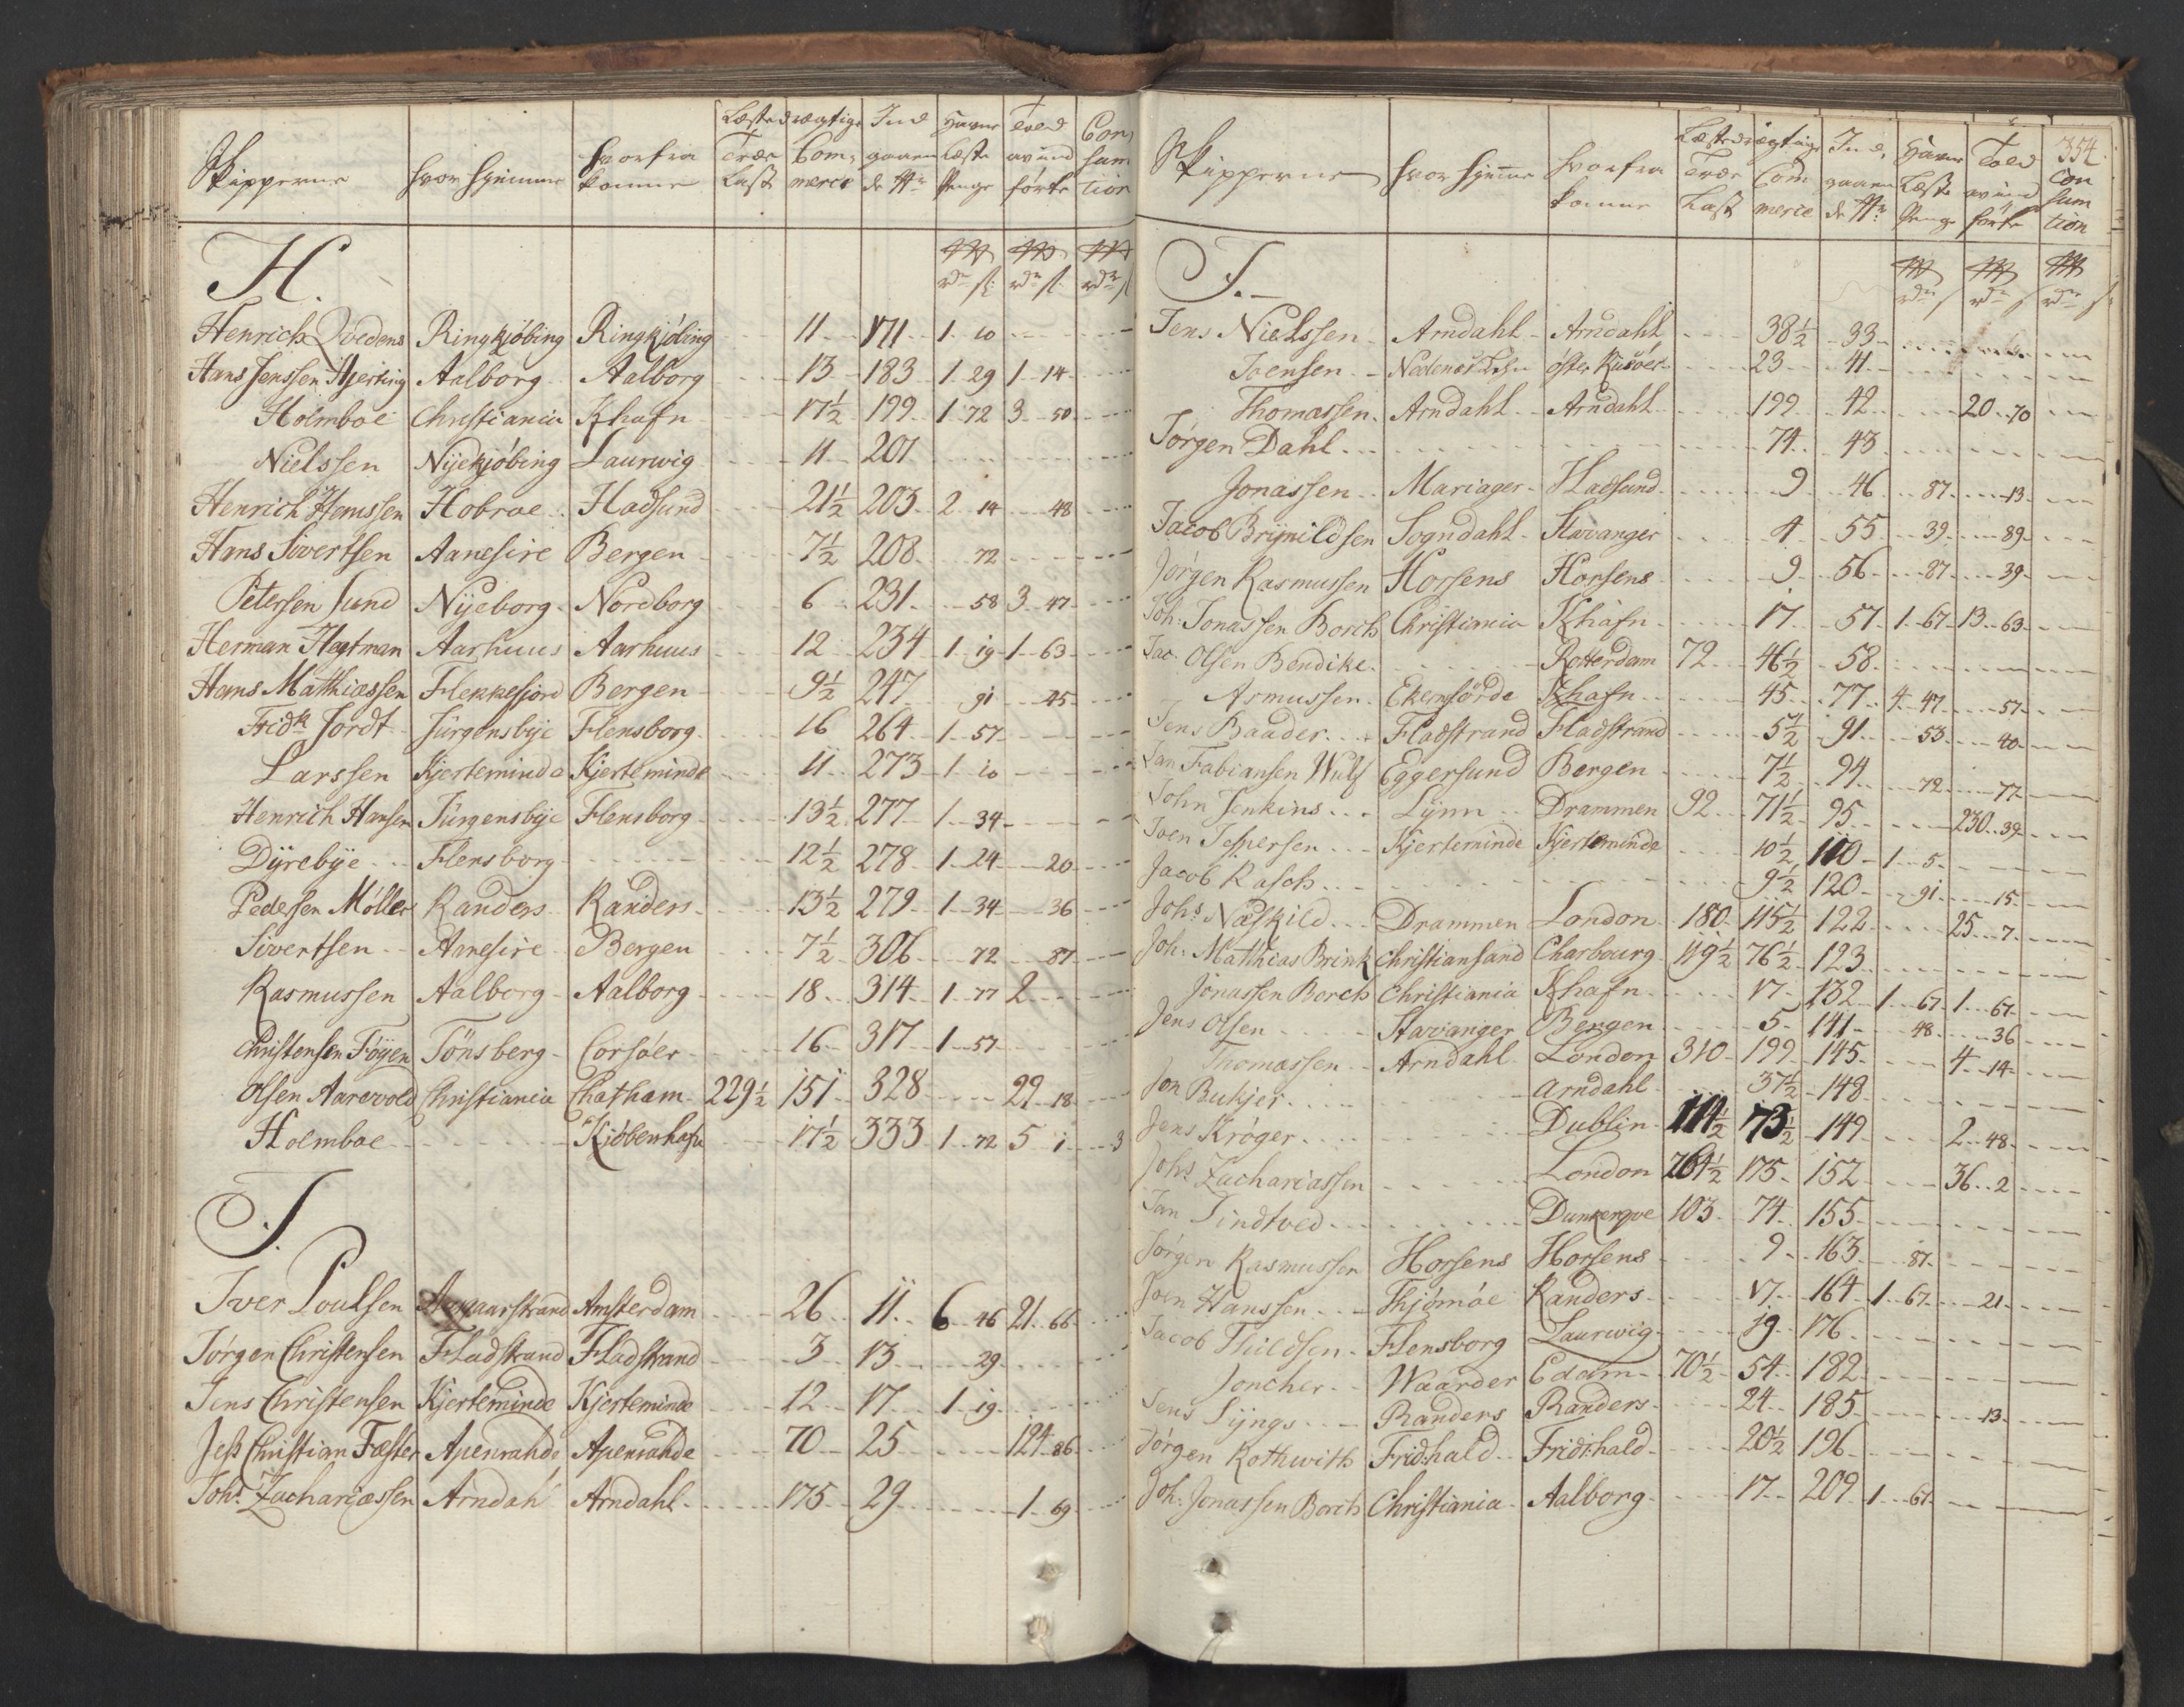 Skipperne | hvor hjemme | hvorfra komme | Læstedrægtige Træe Last | Com- merce | Ind gaaen de No | Havne Læste Penge | Told av ind førte | Con sum tion
H.
rdr s | rdr s | rdr s
Henrich Qvedens Ringkjøbing Ringkjøbing 11 171 1 10
Hans Jenssen Hjerting Aalborg Aalborg 13 183 1 29 1 14
Holmboe Christiania Khafn 17½ 199 1 72 3 50
Nielssen Nyekjøbing Laurwig 11 201
Henrich Hanssen Hobroe Hadsund 21½ 203 2 14 48
Hans Sivertsen Aanesire Bergen 7½ 208 72
Petersen Lund Nyeborg Nordborg 6 231 58 3 47
Herman Hegtman Aarhuus Aarhuus 12 234 1 19 1 63
Hans Mathiassen Flekkefjord Bergen 9½ 247 91 45
Fridk Jordt Jürgensbye Flensborg 16 264 1 57
Larssen Kjerteminde Kjerteminde 11 273 1 10
Henrich Hansen Jürgensbye Flensborg 13½ 277 1 34
Dyrebye Flensborg 12½ 278 1 24 20
Pedersen Møller Randers Randers 13½ 279 1 34 36
Sivertsen Anesire Bergen 7½ 306 72 87
Rasmussen Aalborg Aalborg 18 314 1 77 2
Christensen Føyen Tönsberg Corsöer 16 317 1 57
Olsen Aarevold Christiania Chatham 229½ 151 328 29 18
Holmboe Kjöbenhafn 17½ 333 1 72 5 1 3
I.
Iver Poulsen Aasgaarstrand Amsterdam 26 11 6 46 21 66
Jörgen Christensen Fladstrand Fladstrand 3 13 29
Jens Christensen Kjerteminde Kjerteminde 12 17 1 19
Jess Christian Fæster Apenrahde Apenrahde 70 25 124 86
Johs Zachariassen Arndahl Arndahl 175 29 1 69
354.
Skipperne | hvor hjemme | hvorfra komme | Læstedrægtige Træe Last | Com merce | Ind gaaen de No | Havne Læste Penge | Told av ind førte | Con sum tion
I.
rdr s | rdr s | rdr s
Jens Nielssen Arndahl Arndahl 38½ 33
Joensen Nedenes Lehn öster Riisöer 23 41
Thomassen Arndahl Arndahl 199 42 20 70
Jörgen Dahl 74 43
Jonassen Mariager Hadsund 9 46 87 13
Jacob Brynildsen Sogndahl Stavanger 4 55 39 89
Jørgen Rasmussen Horsens Horsens 9 56 87 39
Joh. Jonassen Borch Christiania Khafn 17 57 1 67 13 63
Jac. Olsen Bendike Rotterdam 72 46½ 58
Asmussen Ekernförde Khafn 45 77 4 47 57
Jens Baader Fladstrand Fladstrand 5½ 91 53 40
Jan Fabiansen Wulf Eggersund Bergen 7½ 94 72 77
John Jenkins Lynn Drammen 92 71½ 95 230 39
Joen Jespersen Kjerteminde Kjerteminde 10½ 110 1 5
Jacob Rasch 9½ 120 91 15
Johs Næskild Drammen London 180 115½ 122 25 7
Joh. Matthias Brink Christiansand Charbourg 119½ 76½ 123
Jonassen Borch Christiania Khafn 17 132 1 67 1 67
Jens Olsen Stavanger Bergen 5 141 48 36
Thomassen Arndahl London 310 199 145 4 14
Jon Bukjer Arndahl 37½ 148
Jens Kröger Dublin 114½ 73½ 149 2 48
Johs Zachariassen London 264½ 175 152 36 2
Jan Tindtved Dunkerqve 103 74 155
Jörgen Rasmussen Horsens Horsens 9 163 87
Joen Hanssen Thjømøe Randers 17 164 1 67 21
Jacob Thildsen Flensborg Laurwig 19 176
Joncher Waarder Edam 70½ 54 182
Jens Lyngs Randers Randers 24 185 13
Jörgen Rothwith Fridhald Fridhald 20½ 196
Joh. Jonassen Borch Christiania Aalborg 17 209 1 67